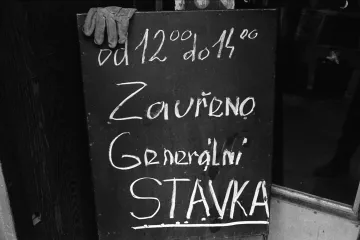 od 12⁰⁰ do 14⁰⁰
Zavřeno
Generální
STÁVKA